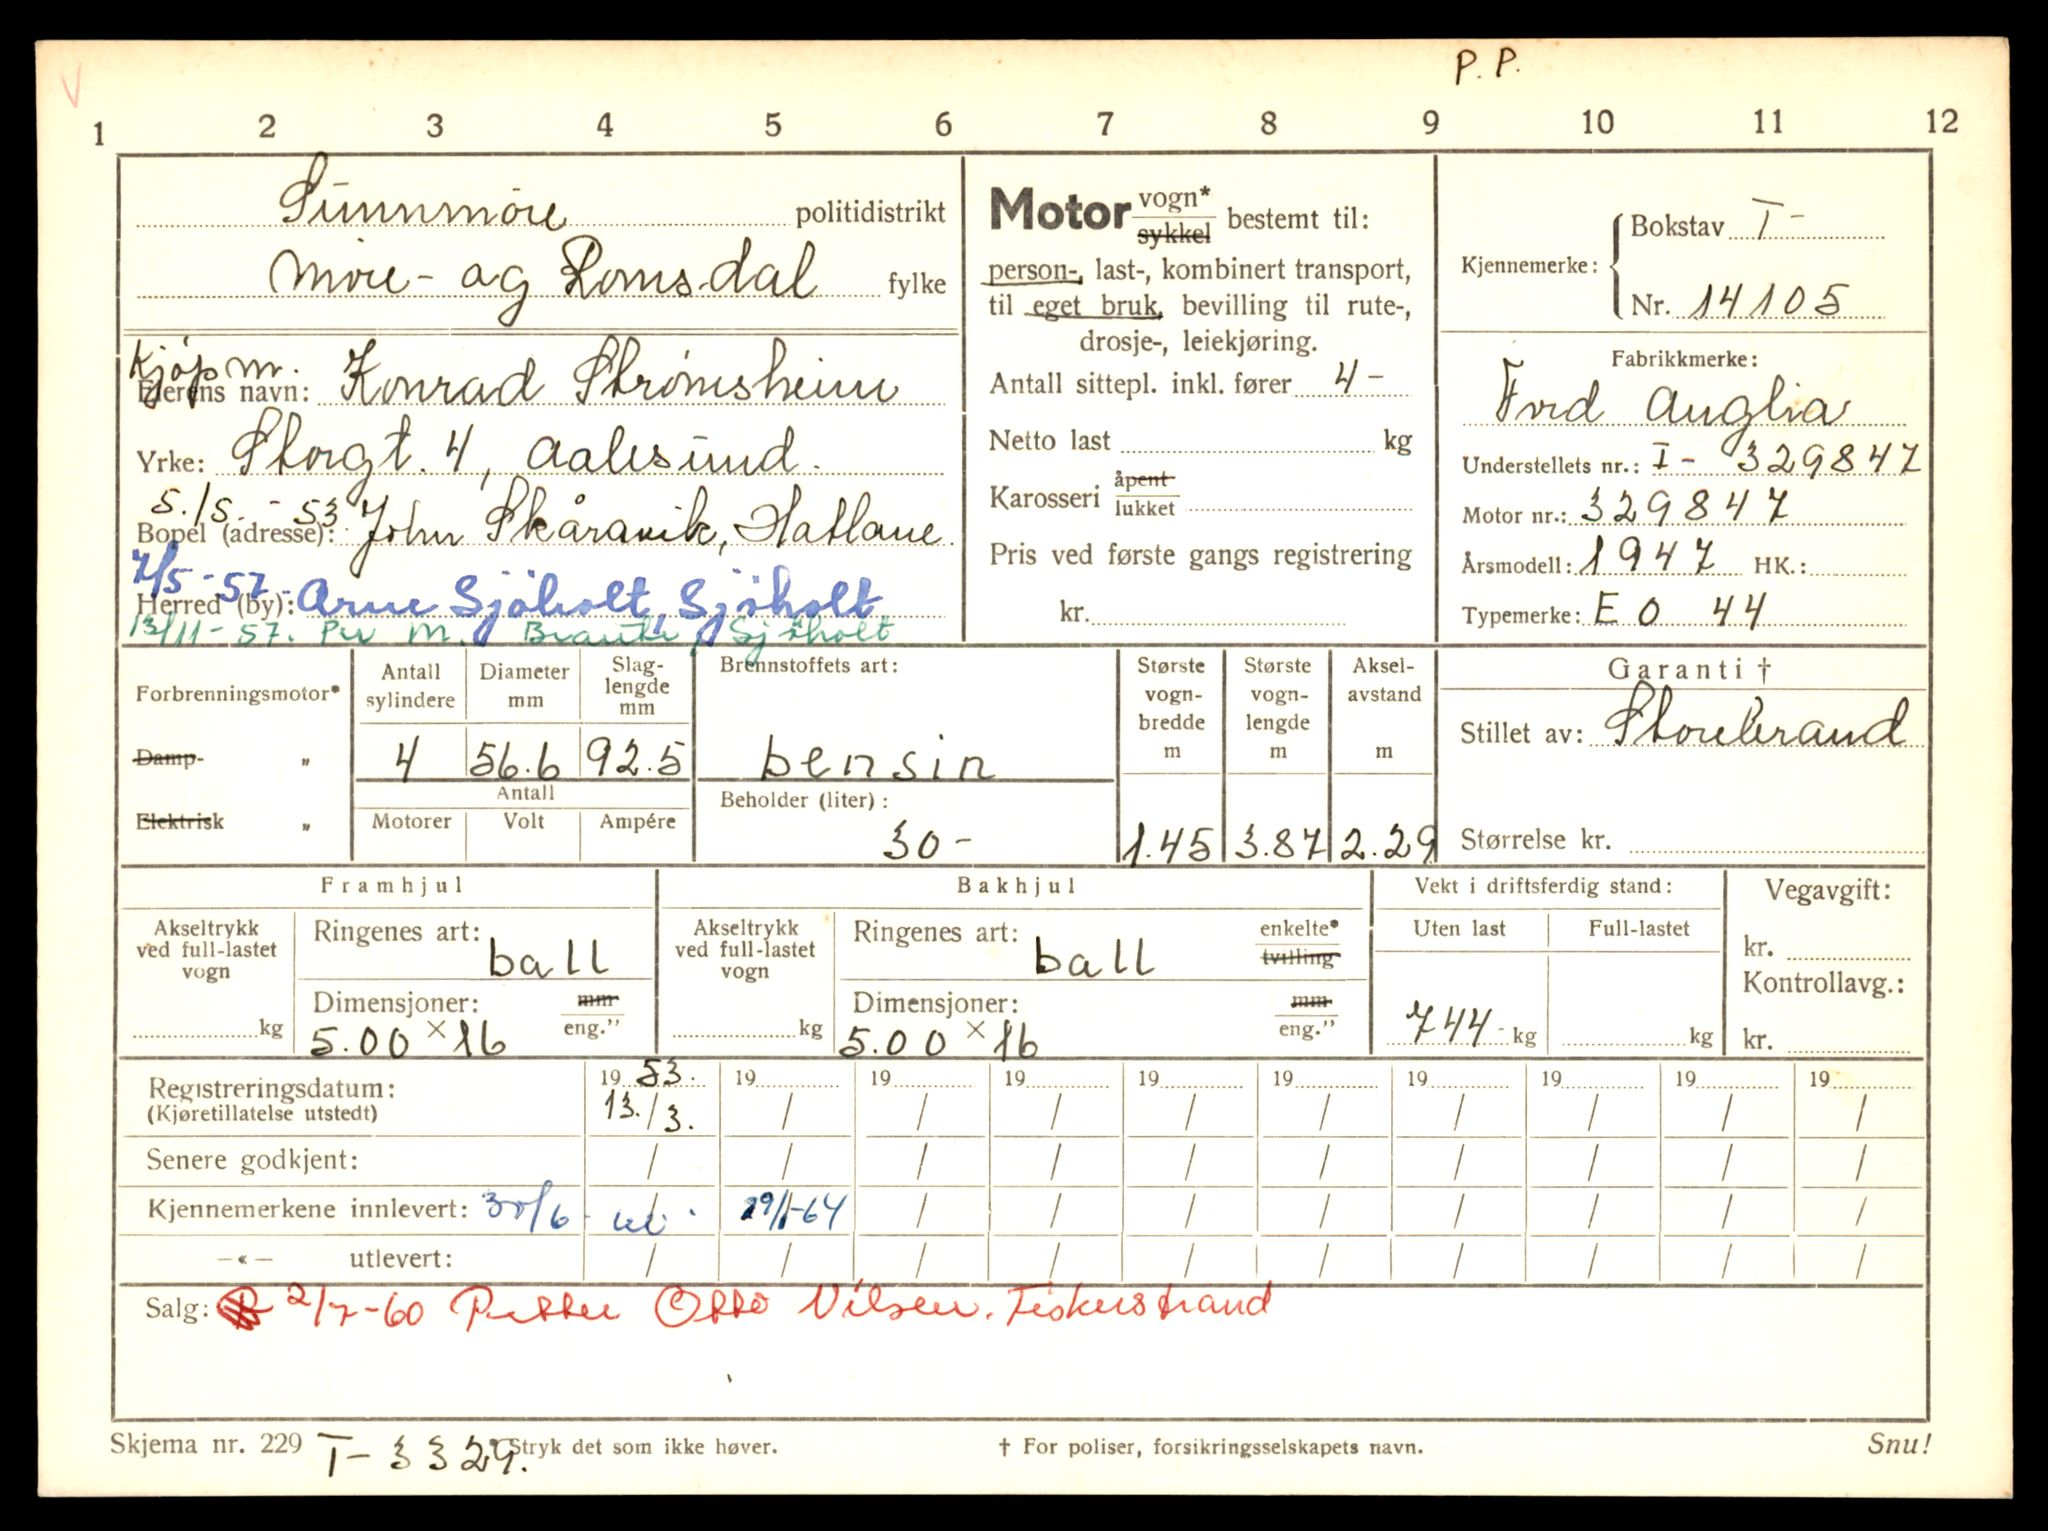 P. P.
V
1 2 3 4 5 6 7 8 9 10 11 12
Sunnmöre politidistrikt
Möre- og Romsdal fylke
Kjöpm.
Eierens navn: Konrad Strömsheim
Yrke: Storgt. 4, Aalesund.
5./5. - 53
Bopel (adresse): John Skåravik, Hatlane.
7/5-57-
Herred (by): Arne Sjöholt, Sjöholt
13/11-57. Per M. Sjöholt
Motor vogn* sykkel bestemt til:
person-, last-, kombinert transport,
til eget bruk, bevilling til rute-,
drosje-, leiekjøring.
Antall sittepl. inkl. fører 4-
Netto last kg
Karosseri åpent lukket
Pris ved første gangs registrering
kr.
Kjennemerke: Bokstav T-
Nr. 14105
Fabrikkmerke:
Ford Anglia
Understellets nr.: I- 329847
Motor nr.: 329847
Årsmodell: 1947 HK.:
Typemerke: E O 44
Forbrenningsmotor*
Damp- „
Elektrisk „
Antall sylindere Diameter mm Slaglengde mm
4 56.6 92.5
Antall
Motorer Volt Ampére
Brennstoffets art:
bensin
Beholder (liter):
30-
Største vogn-bredde m Største vogn-lengde m Aksel-avstand m
1.45 3.87 2.29
Garanti †
Stillet av: Storebrand
Størrelse kr.
Framhjul
Akseltrykk ved full-lastet vogn
kg
Ringenes art: ball
Dimensjoner: mm eng.”
5.00 × 16
Bakhjul
Akseltrykk ved full-lastet vogn
kg
Ringenes art: ball enkelte* tvilling
Dimensjoner: mm eng.”
5.00 × 16
Vekt i driftsferdig stand:
Uten last Full-lastet
744- kg kg
Vegavgift:
kr.
Kontrollavg.:
kr.
Registreringsdatum: 19 53. 19 19 19 19 19 19 19 19 19
(Kjøretillatelse utstedt) 13./3. / / / / / / / / /
Senere godkjent: / / / / / / / / / /
Kjennemerkene innlevert: 30/6 - / 29/1-64 / / / / / / / /
—«— utlevert: / / / / / / / / / /
Salg: 2/7-60 Petter Otto Nilsen. Fiskerstrand
Skjema nr. 229 T- 3329. * Stryk det som ikke høver. † For poliser, forsikringsselskapets navn. Snu!